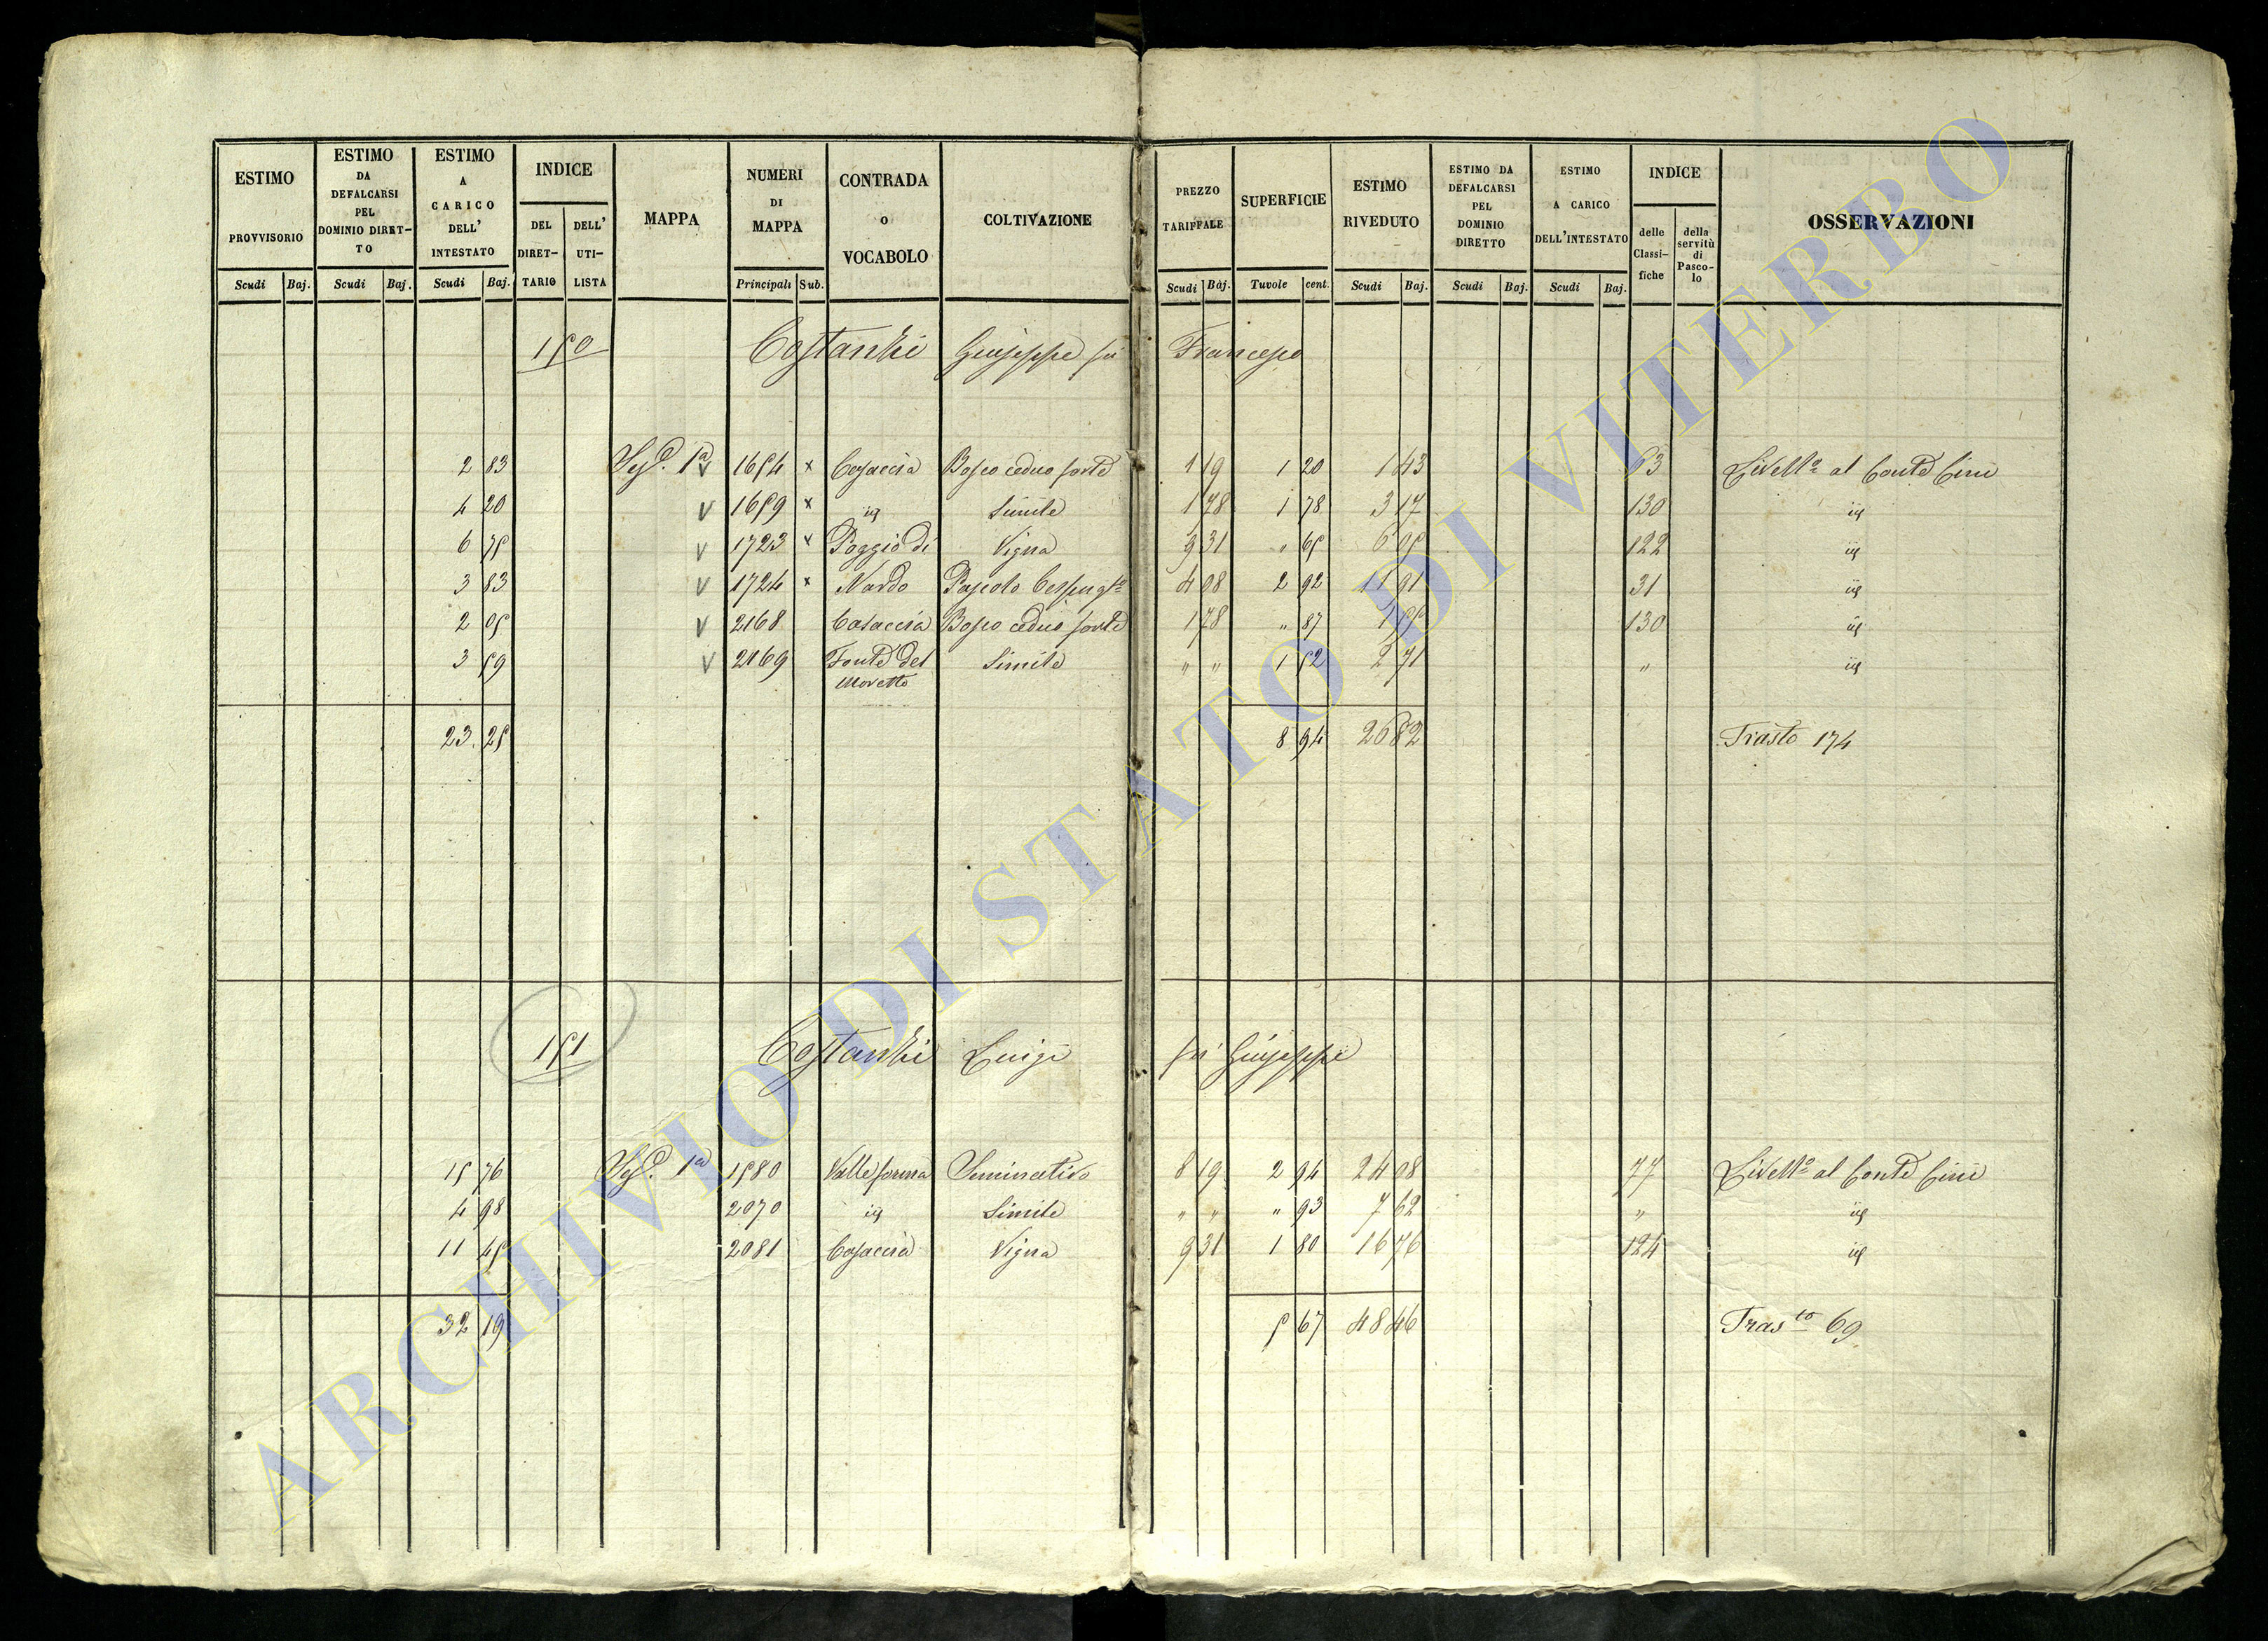 ESTIMO PROVVISORIO Scudi Baj.
ESTIMO DA DEFALCARSI PEL DOMINIO DIRET-TO Scudi Baj.
ESTIMO A CARICO DELL' INTESTATO Scudi Baj.
INDICE DEL DIRET-TARIO DELL' UTI-LISTA
MAPPA
NUMERI DI MAPPA Principali Sub.
CONTRADA o VOCABOLO
COLTIVAZIONE
PREZZO TARIFFALE Scudi Baj.
SUPERFICIE Tuvole cent.
ESTIMO RIVEDUTO Scudi Baj.
ESTIMO DA DEFALCARSI PEL DOMINIO DIRETTO Scudi Baj.
ESTIMO A CARICO DELL'INTESTATO Scudi Baj.
INDICE delle Classi-fiche della servitù di Pasco-lo
OSSERVAZIONI
150 Costanzi Giuseppe fu Francesco
2 83 Sez. 1a v 1654 x Casaccia Bosco ceduo forte 1 19 1 20 1 43 63 Livello al Conte Cini
4 20 v 1659 x id Simile 1 78 1 78 3 17 130 id
6 75 v 1723 x Poggio di Vigna 9 31 " 65 6 05 122 id
3 83 v 1724 x Nardo Pascolo Cespugto 4 08 2 92 11 91 31 id
2 05 v 2168 Casaccia Bosco ceduo forte 1 78 " 87 1 55 130 id
3 59 v 2169 Fonte del Simile " " 1 52 2 71 " id
Moretto
23 25 8 94 26 82 Trasto 174
151 Costanzi Luigi fu Giuseppe
15 76 Sez. 1a 1580 Valle forma Seminativo 8 19 2 94 24 08 77 Livello al Conte Cini
4 98 2070 id Simile " " " 93 7 62 " id
11 45 2081 Casaccia Vigna 9 31 1 80 16 76 124 id
32 19 5 67 48 46 Trasto 69
ARCHIVIO DI STATO DI VITERBO